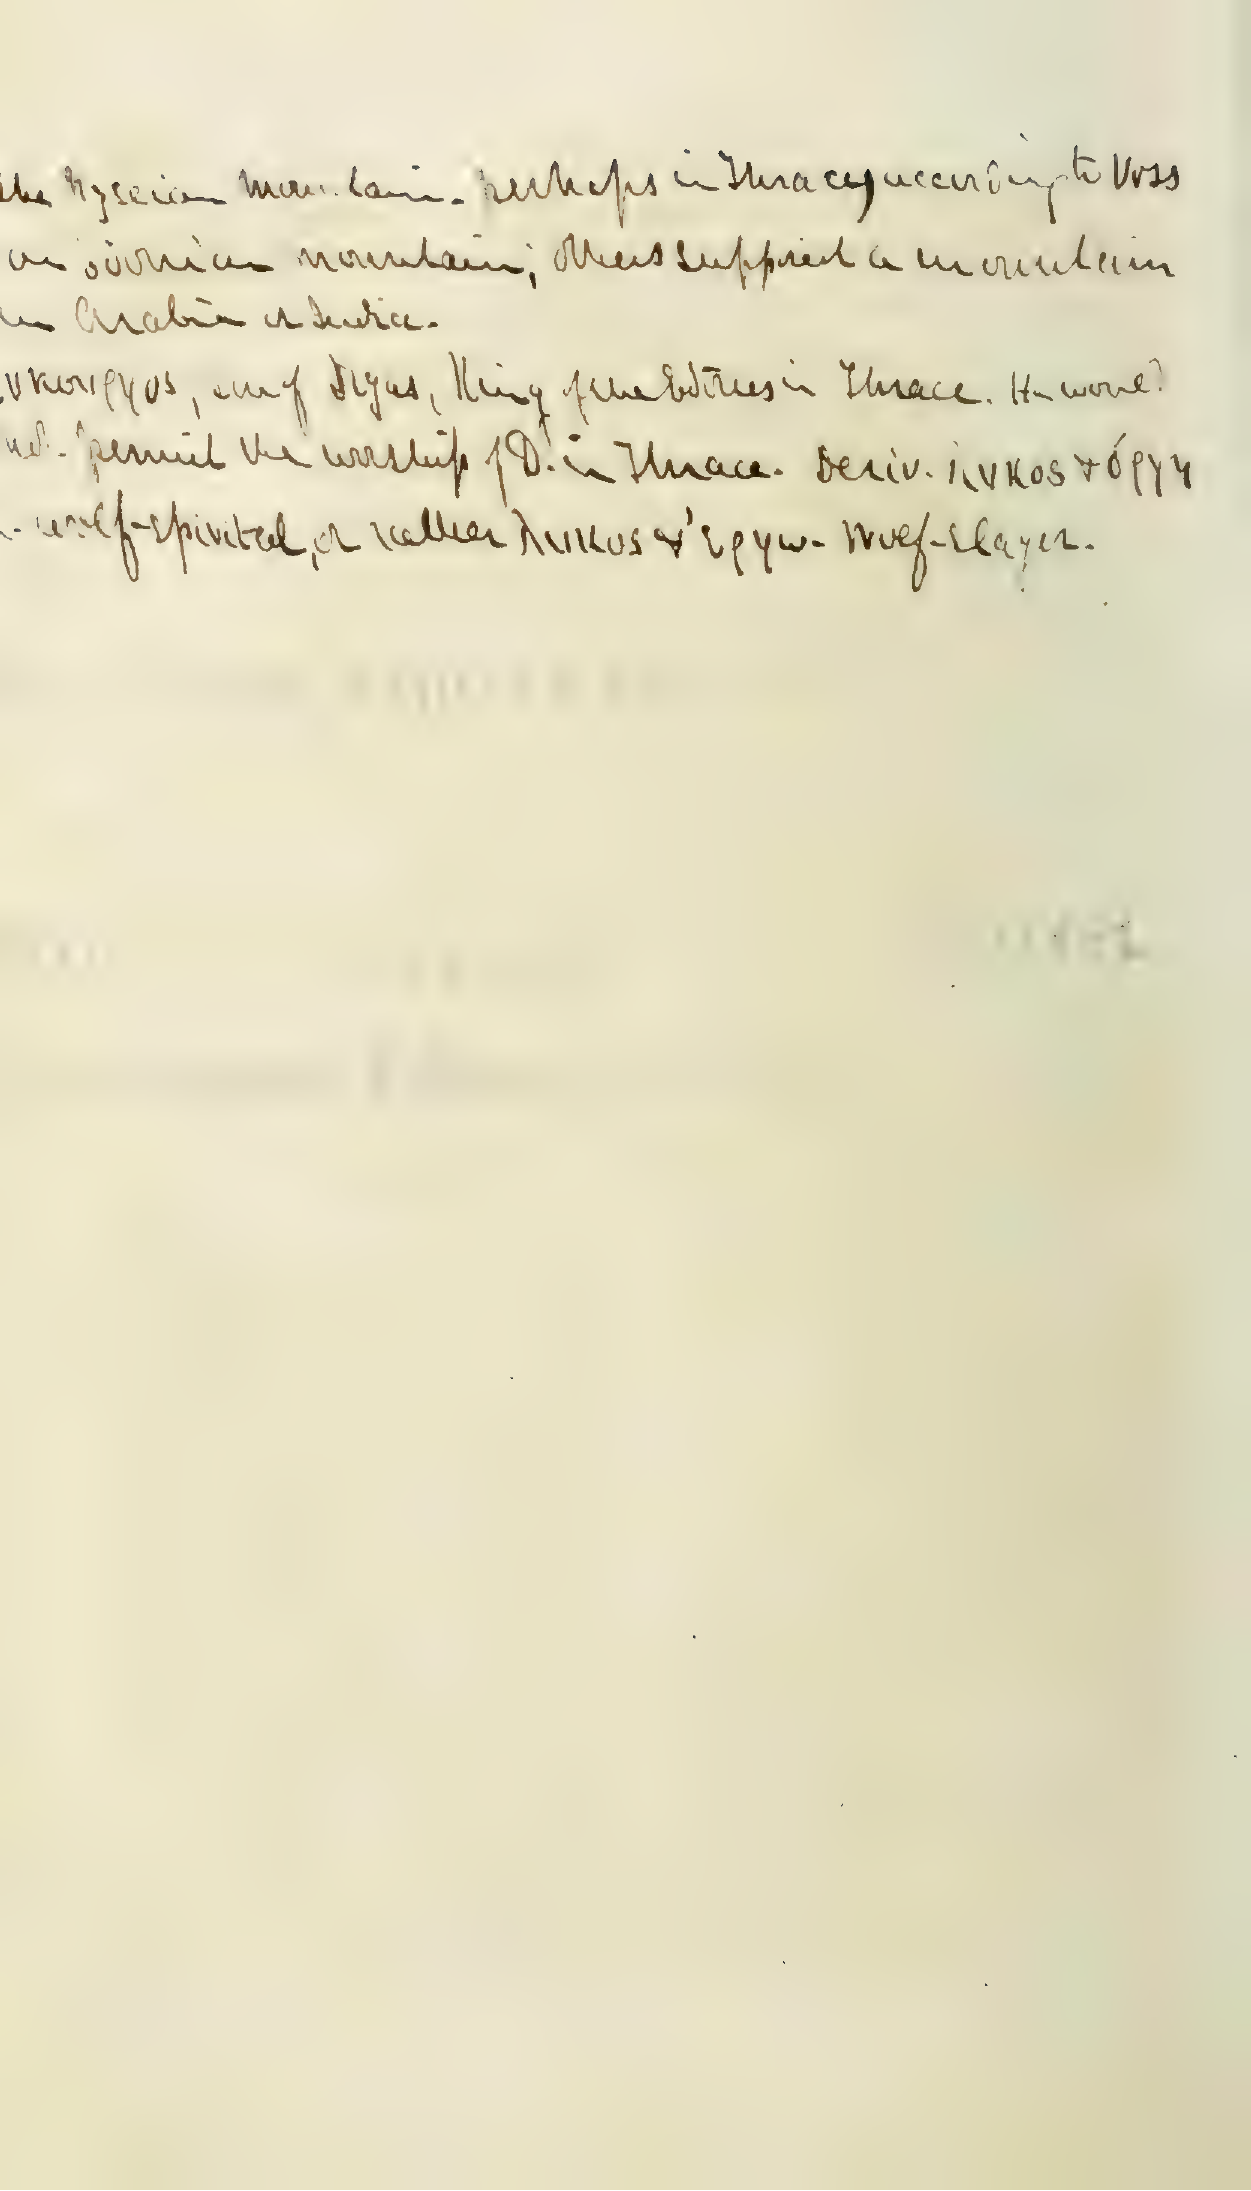 the Nyseian Mountain. Perhaps in Thrace, according to Voss
an mountain; others suppose it a mountain
in Arabia or India.
υκουργος, son of Dryas, King of the Edones in Thrace. He would
not permit the worship of D. in Thrace. Deriv. λυκος & όργη
wolf-spirited, or rather λυκος & ἔργω. Wolf-slayer.